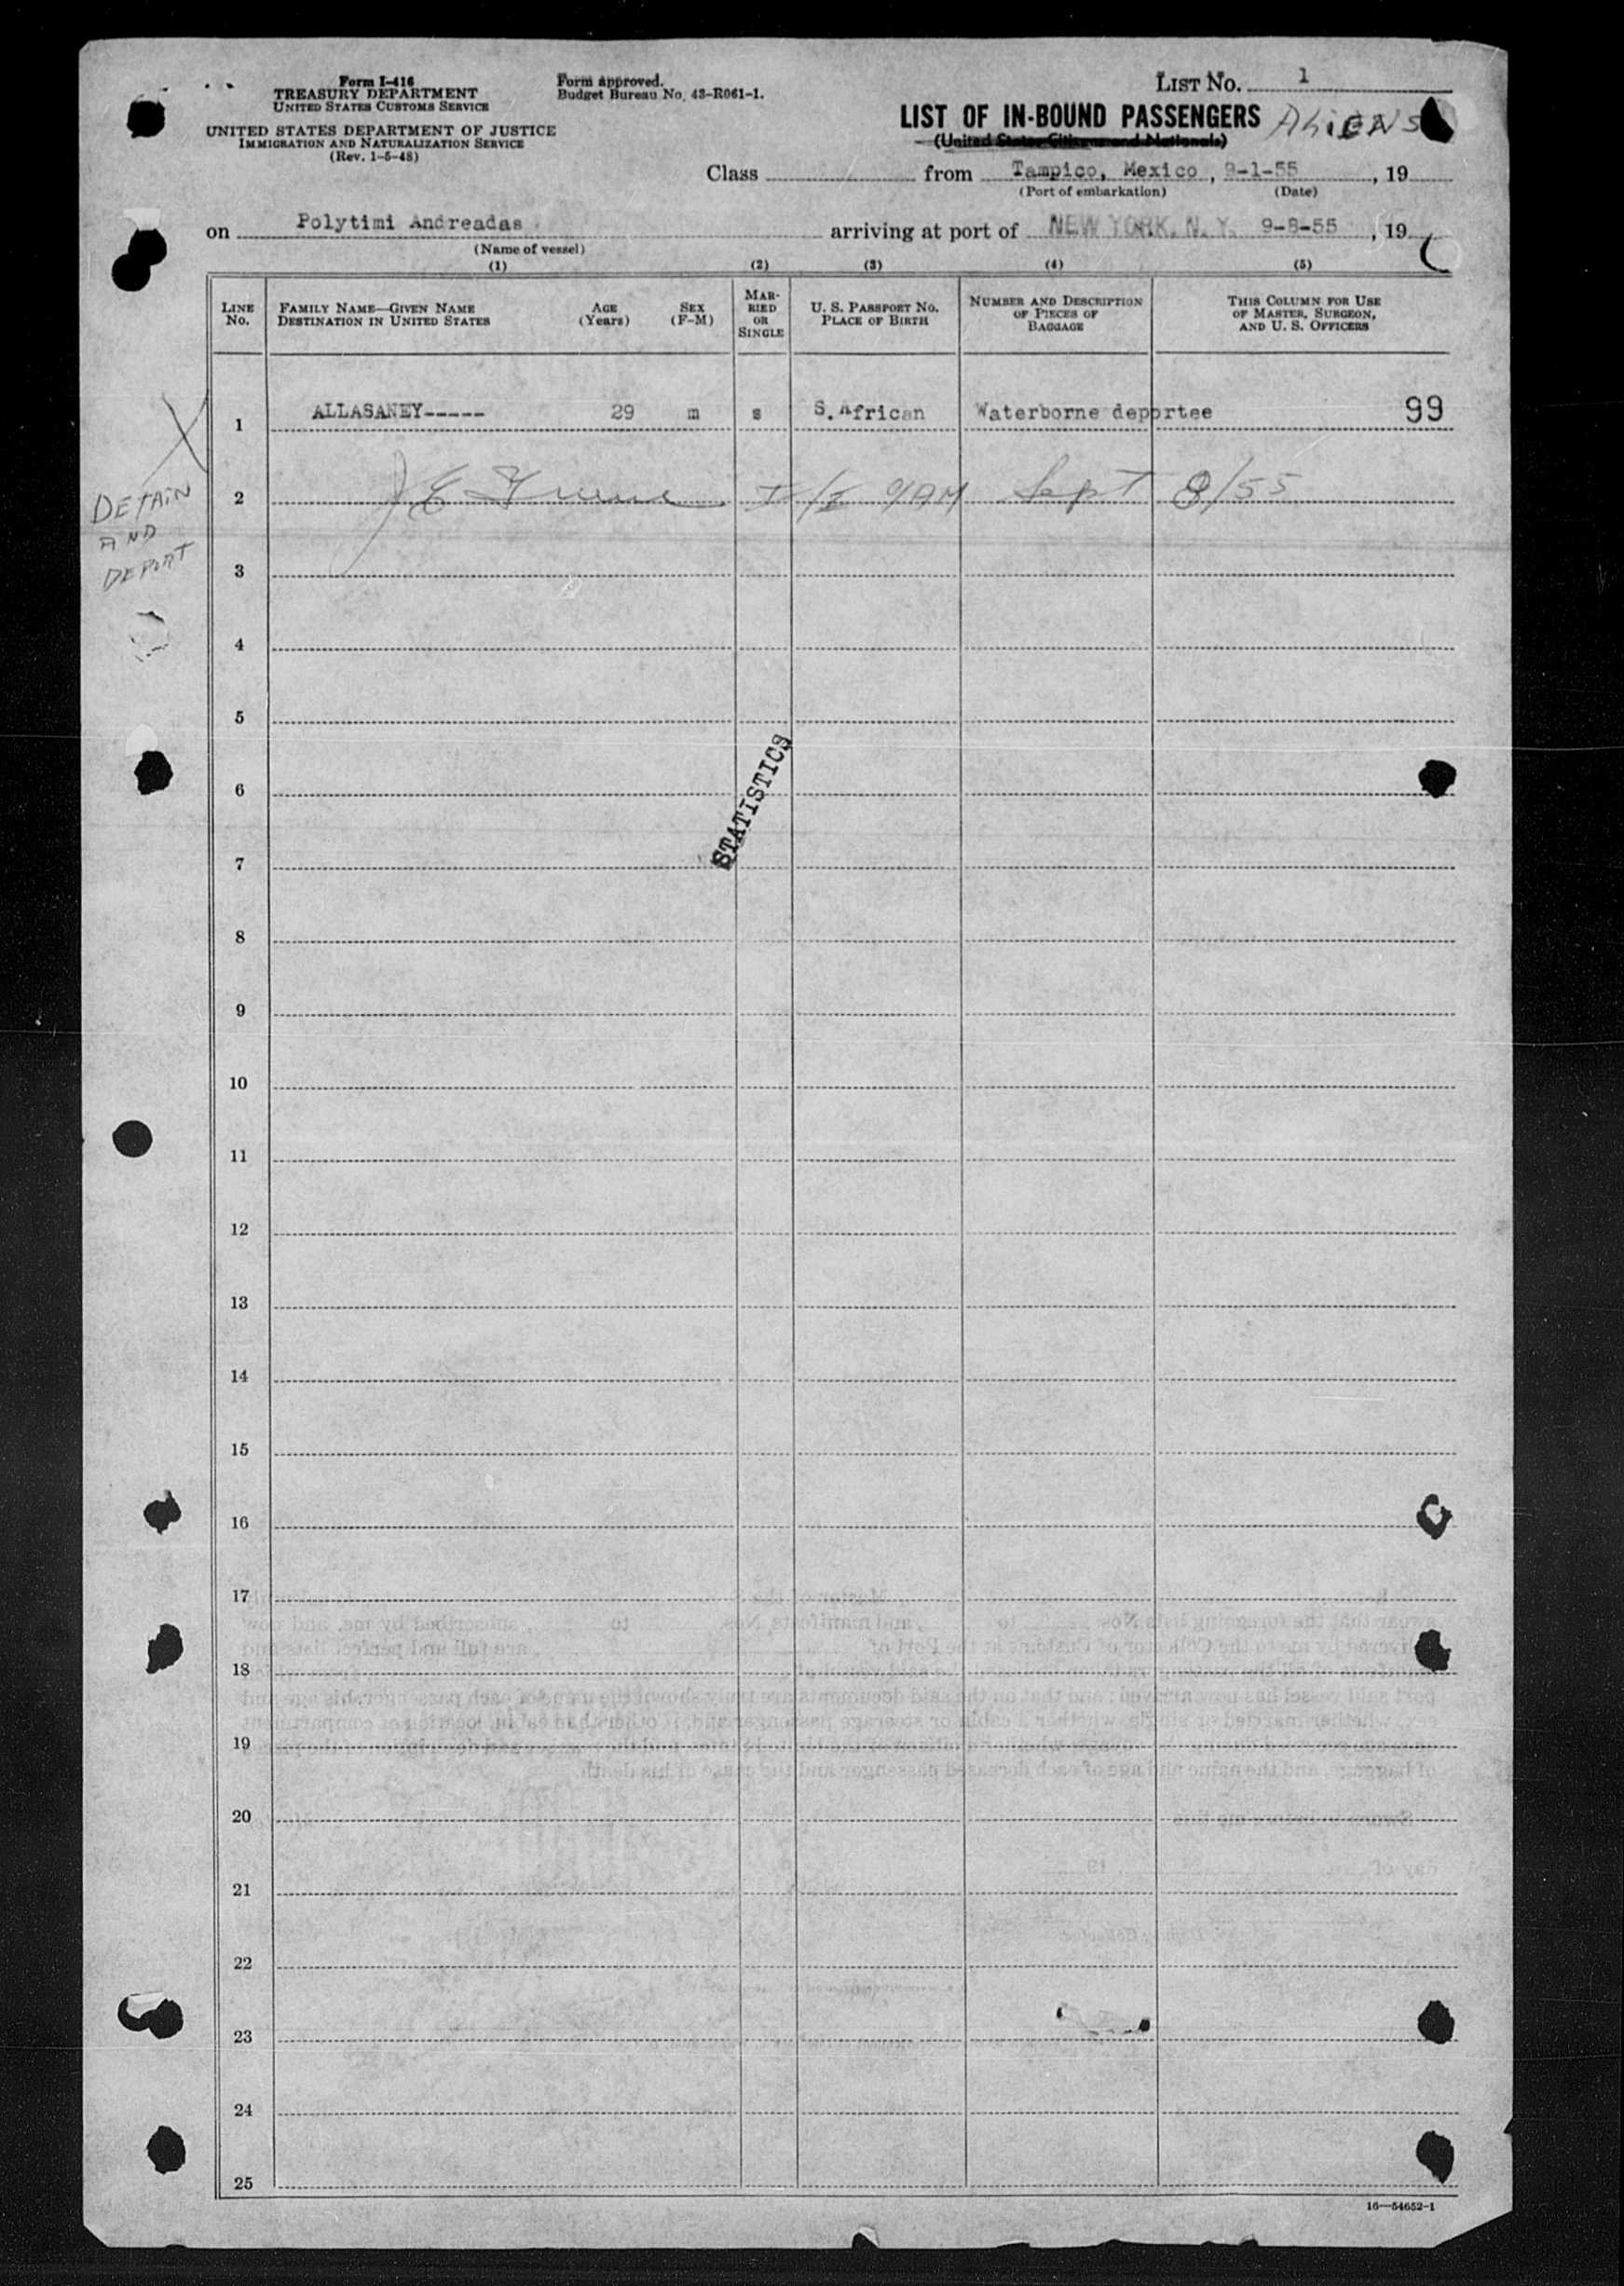 Form I-416
TREASURY DEPARTMENT
UNITED STATES CUSTOMS SERVICE
UNITED STATES DEPARTMENT OF JUSTICE
IMMIGRATION AND NATURALIZATION SERVICE
(Rev. 1-5-48)
Form approved.
Budget Bureau No. 43-R061-1.
LIST NO. 1
LIST OF IN-BOUND PASSENGERS ALiENS
(United States Citizens and Nationals)
Class from Tampico, Mexico, 9-1-55, 19
(Port of embarkation) (Date)
on Polytimi Andreadas arriving at port of NEW YORK, N. Y. 9-8-55, 19
(Name of vessel)
(1) (2) (3) (4) (5)
LINE No. FAMILY NAME—GIVEN NAME DESTINATION IN UNITED STATES AGE (Years) SEX (F-M) MARRIED OR SINGLE U. S. PASSPORT NO. PLACE OF BIRTH NUMBER AND DESCRIPTION OF PIECES OF BAGGAGE THIS COLUMN FOR USE OF MASTER, SURGEON, AND U. S. OFFICERS
1 ALLASANEY----- 29 m s S. African Waterborne deportee 99
DETAiN
AND
DEPORT
2 Sept 8/55
3
4
5
STATISTICS
6
7
8
9
10
11
12
13
14
15
16
17
18
19
20
21
22
23
24
25
16—54652-1